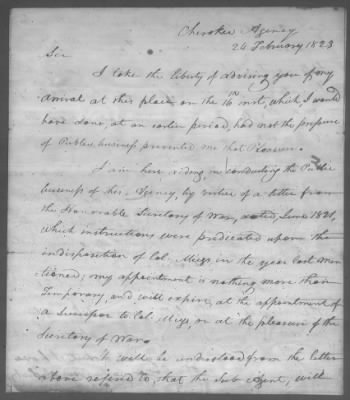 Cherokee Agency
24 February 1823
Sir
I take the liberty of advising you of my
arrival at this place on the 16th inst, which, I would
have done, at an earlier period, had not the pressure
of Public business prevented me that Pleasure.
I am here aiding, in conducting the Public
business of this Agency, by virtue of a letter from
the Honorable Secretary of War, dated, June 1821,
which instructions were predicated upon the
indisposition of Col. Meigs, in the year last men
tioned, my appointment is nothing more than
Temporary, and will expire, at the appointment of
a Successor to Col. Meigs, or at the pleasure of the
Secretary of War.
It will be understood from the letter
above refered to, that the Sub Agent, will